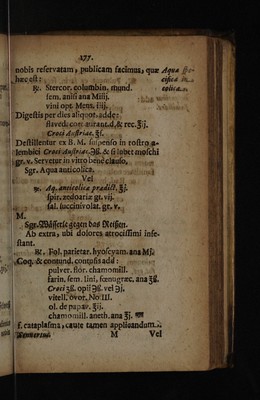 277.
nobis reservatam, publicam facimus, quæ
hæc est:
Aqua spe-
cifica in
colica.
℞. Stercor. columbin. mund.
sem. anisi ana Miij.
vini opt. Mens. iiij.
Digestis per dies aliquot. adde:
flaved. cort. aurant. d. & rec. ℥ij.
Croci Austriac. ℥ß.
Destillentur ex B. M. suspenso in rostro a-
lembici Croci Austriac. ℈ß. & si lubet moschi
gr. v. Servetur in vitro bene clauso.
Sgr. Aqua anticolica.
Vel
℞. Aq. anticolicæ prædict. ℥j.
spir. zedoariæ gt. vij.
sal. succini volat. gr. v.
M.
Sgr. Wässerle gegen das Reissen.
Ab extra, ubi dolores atrocissimi infe-
stant.
℞. Fol. parietar. hyoscyam. ana Mj.
Coq. & contund. contusis add:
pulver. flor. chamomill.
farin. sem. lini, fœnugræc. ana ℥ß.
Croci ʒß. opii ℈ß. vel ℈j.
vitell. ovor. No. III.
ol. de papav. ℥ij.
chamomill. aneth. ana ℥j.
f. cataplasma, caute tamen applicandum.
M Vel